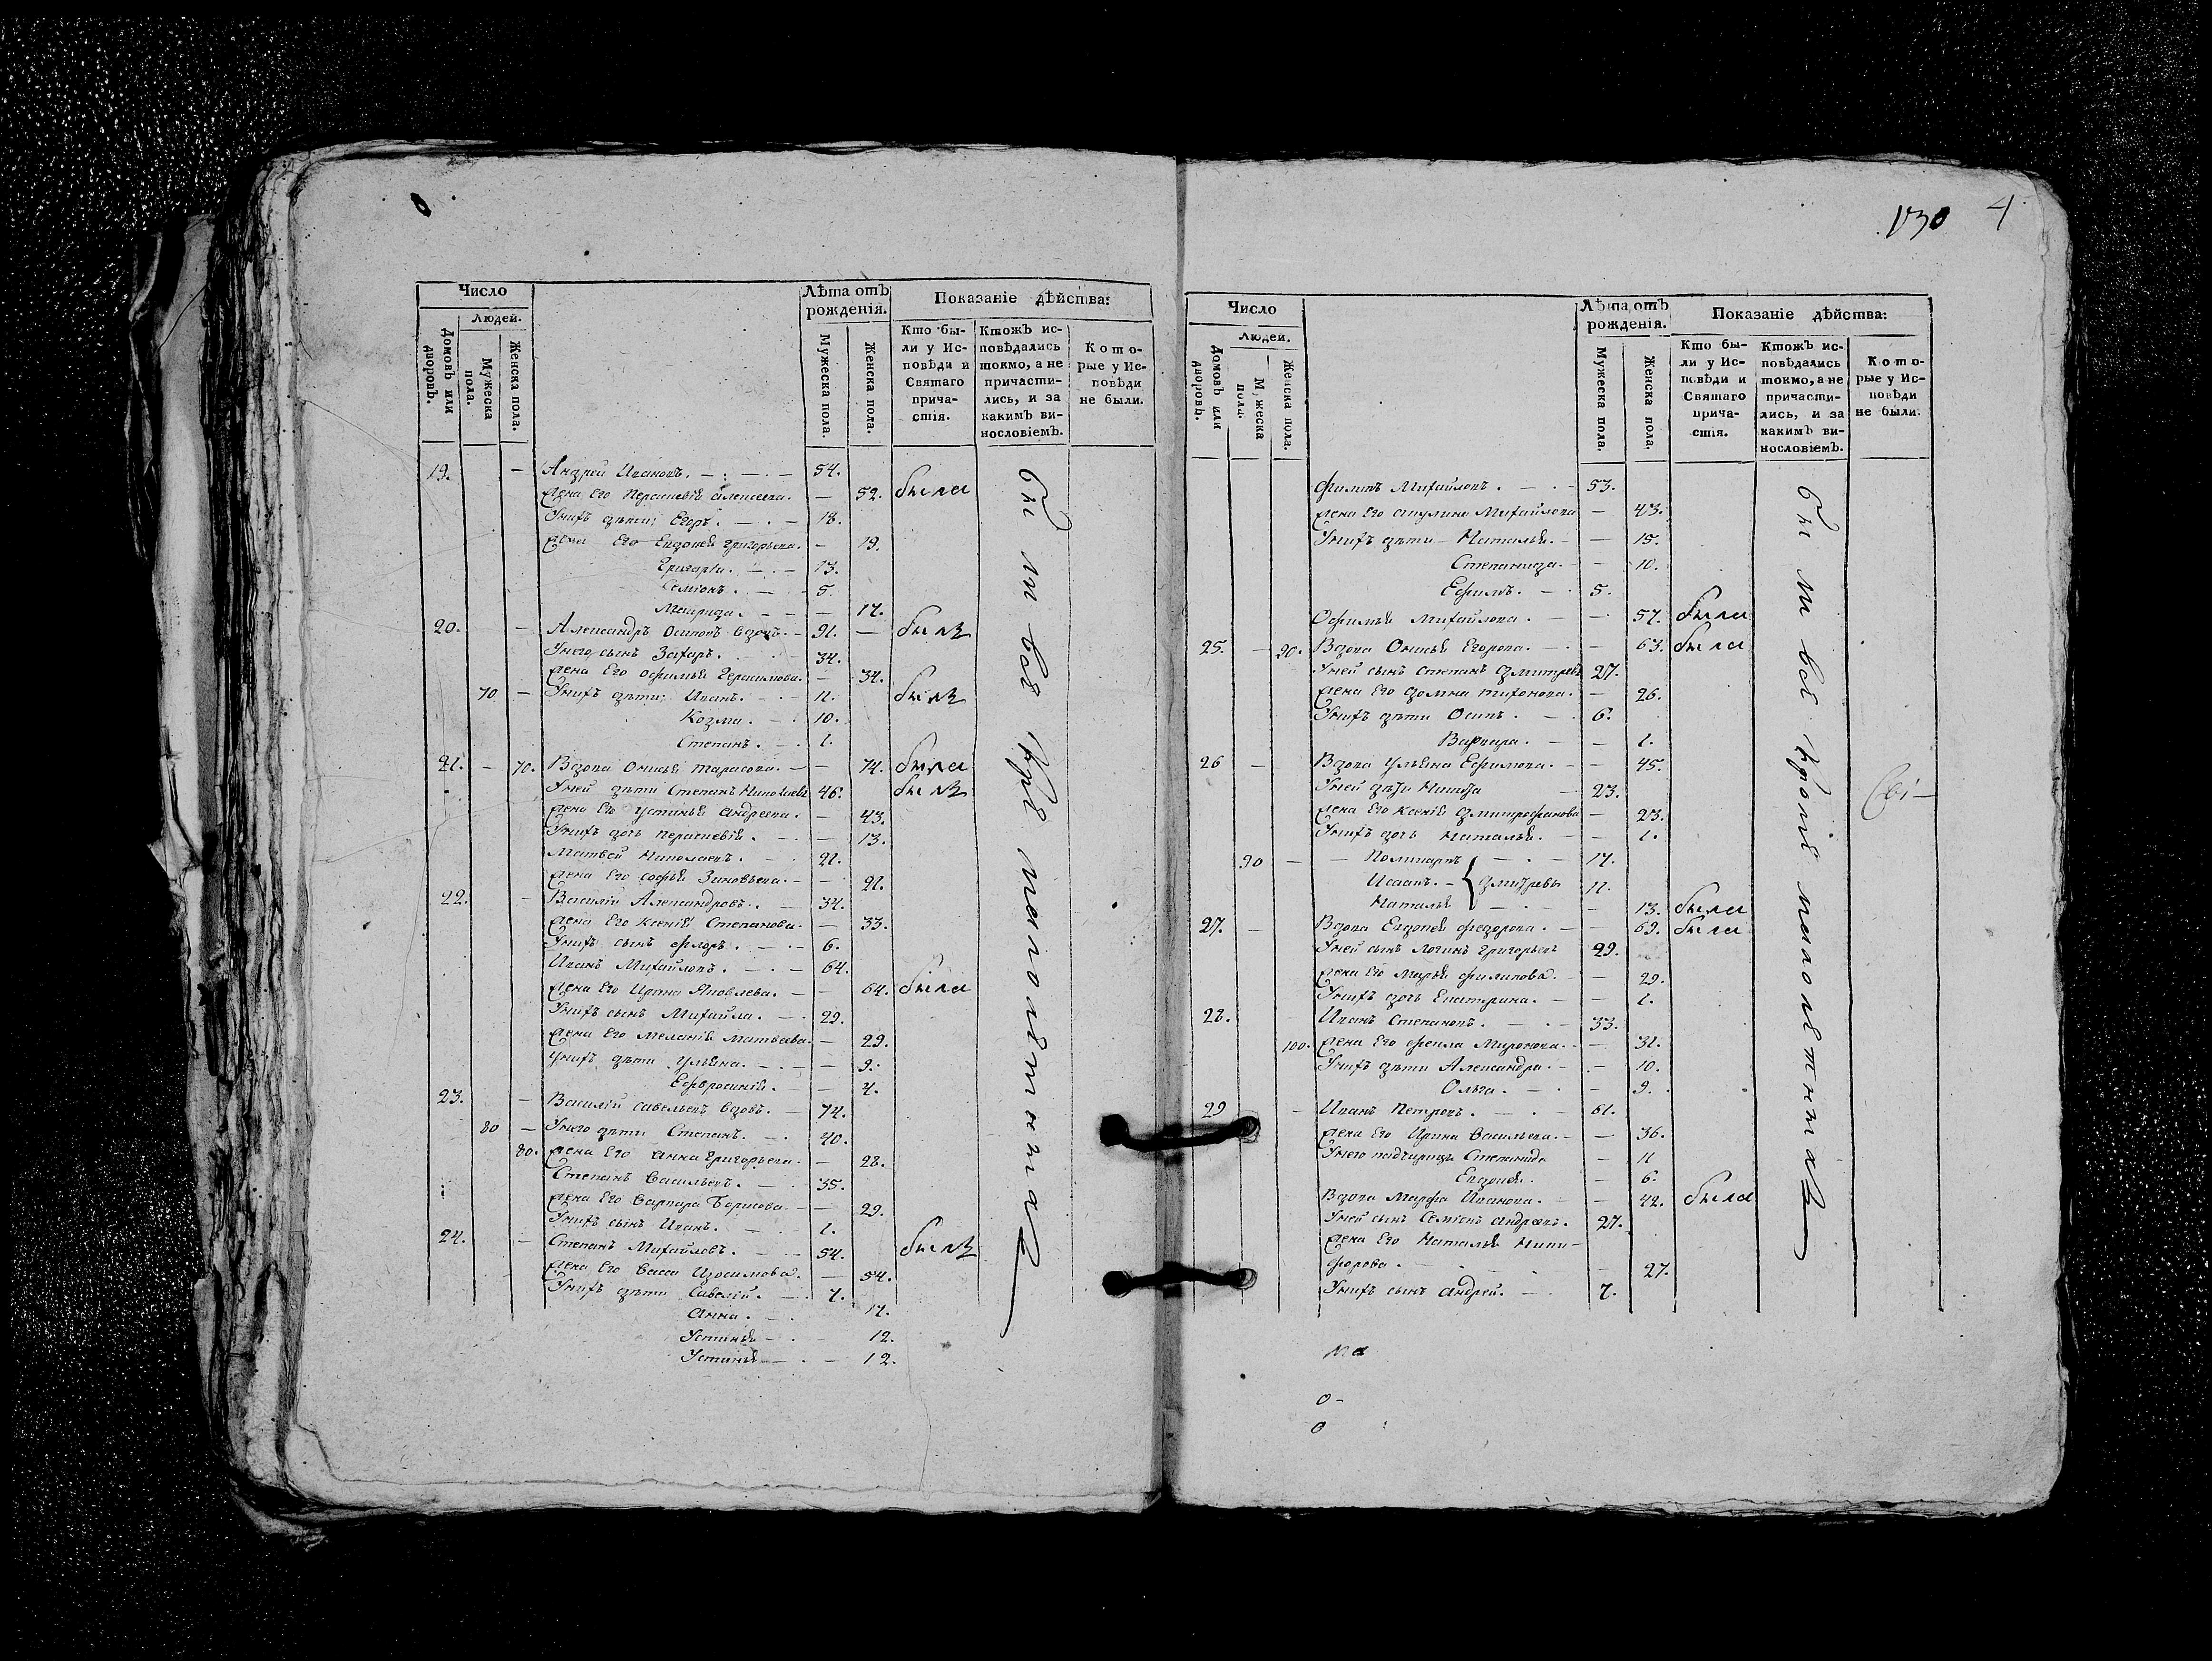 Число
Людей.
Домовъ или дворовъ.
Мужеска пола.
Женска пола.
Лѣта отъ рожденія.
Мужеска пола.
Женска пола.
Показаніе дѣйства:
Кто бы-
ли у Ис-
повѣди и
Святаго
прича-
стія.
Ктожъ ис-
повѣдались
токмо, а не
причасти-
лись, и за
какимъ ви-
нословіемъ.
Кото-
рые у Ис-
повѣди
не были.
19. — Андрей Ивановъ. 54.
жена Его Параскевія Алексеева. — 52. была
Унихъ дѣти: Егоръ. 18.
жена Его Евдокея Григорьева. — 19.
Григорій. 13.
Семіонъ. 5.
Маврида. — 17.
20. — Александръ Осиповъ вдовъ. 91. — былъ
Унего сынъ Захаръ. 34.
жена Его Офимья Герасимова. — 34.
70 — Унихъ дѣти: Иванъ. 11. былъ
Козма. 10.
Степанъ. 1.
21. — 70. Вдова Онисья Тарасова. — 74. была
Уней дѣти Степанъ Николаевъ 46. былъ
жена Его Устинья Андреева. — 43.
Унихъ дочь Параскевія. — 13.
Матвей Николаевъ. 21.
жена Его Софья Зиновьева. — 21.
22. — Василій Александровъ. 34.
жена Его Ксенія Степанова. — 33.
Унихъ сынъ Флоръ. 6.
Иванъ Михайловъ. 64.
жена Его Ирина Яковлева. — 64. была
Унихъ сынъ Михайла. 29.
жена Его Меланія Матвѣева. — 29.
Унихъ дѣти Ульяна. — 9.
Ефросинія. — 4.
23. — Василій Савельевъ вдовъ. 74.
80 — Унего дѣти Степанъ. 40.
80. жена Его Анна Григорьева. — 28.
Степанъ Васильевъ. 35.
жена Его Варвара Борисова. — 29.
Унихъ сынъ Иванъ. 1.
24. — Степанъ Михайловъ. 54. былъ
жена Его Васса Изосимова. — 54.
Унихъ дѣти Савелій. 7.
Анна. — 17.
Устинья — 12.
Устинья — 12.
130 4
Число
Людей.
Домовъ или дворовъ.
Мужеска пола.
Женска пола.
Лѣта отъ рожденія.
Мужеска пола.
Женска пола.
Показаніе дѣйства:
Кто бы-
ли у Ис-
повѣди и
Святаго
прича-
стія.
Ктожъ ис-
повѣдались
токмо, а не
причасти-
лись, и за
какимъ ви-
нословіемъ.
Кото-
рые у Ис-
повѣди
не были.
Филипъ Михайловъ. 53.
жена Его Акулина Михайлова — 43.
Унихъ дѣти Наталья. — 15.
Степанида. — 10.
Ефимъ. 5.
Офимья Михайлова. — 57. была
25. — 90. Вдова Онисья Егорова. — 63. была
Уней сынъ Степанъ Дмитревъ 27.
жена Его Домна Тихонова. — 26.
Унихъ дѣти Осипъ. 6.
Варвара. — 1.
26 — Вдова Ульяна Ефимова. — 45.
Уней дѣти Никита 23.
жена Его Ксенія Дмитрофанова — 23.
Унихъ дочь Наталья. — 1.
90 — Поликарпъ 17.
Исаакъ. Дмитревы 11.
Наталья — 13. была
27. — Вдова Евдокея Федорова. — 69. была
Уней сынъ Логинъ Григорьевъ 29.
жена Его Марья Филипова. — 29.
Унихъ дочь Екатерина. — 1.
28. Иванъ Степановъ. 33.
100. жена Его Фекла Миронова. — 31.
Унихъ дѣти Александра. — 10.
Ольга. — 9.
29 — Иванъ Петровъ. 61.
жена Его Ирина Васильева. — 36.
Унего падчерицы Степанида — 11
Евдокея. — 6.
Вдова Марфа Иванова. — 42. была
Уней сынъ Семіонъ Андреевъ. 27.
жена Его Наталья Ники-
форова. — 27.
Унихъ сынъ Андрей. 7.